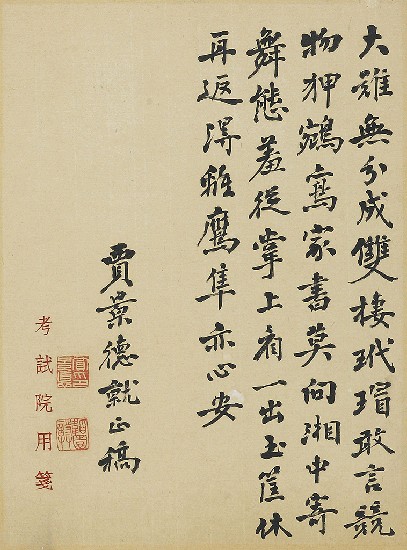 大雖無分成雙棲玳瑁敢言競
物狎鵷寫家書莫向湘中寄
舞態羞從掌上看一出玉筐休
再返得離鷹隼亦心安
賈景德就正稿
考試院用箋